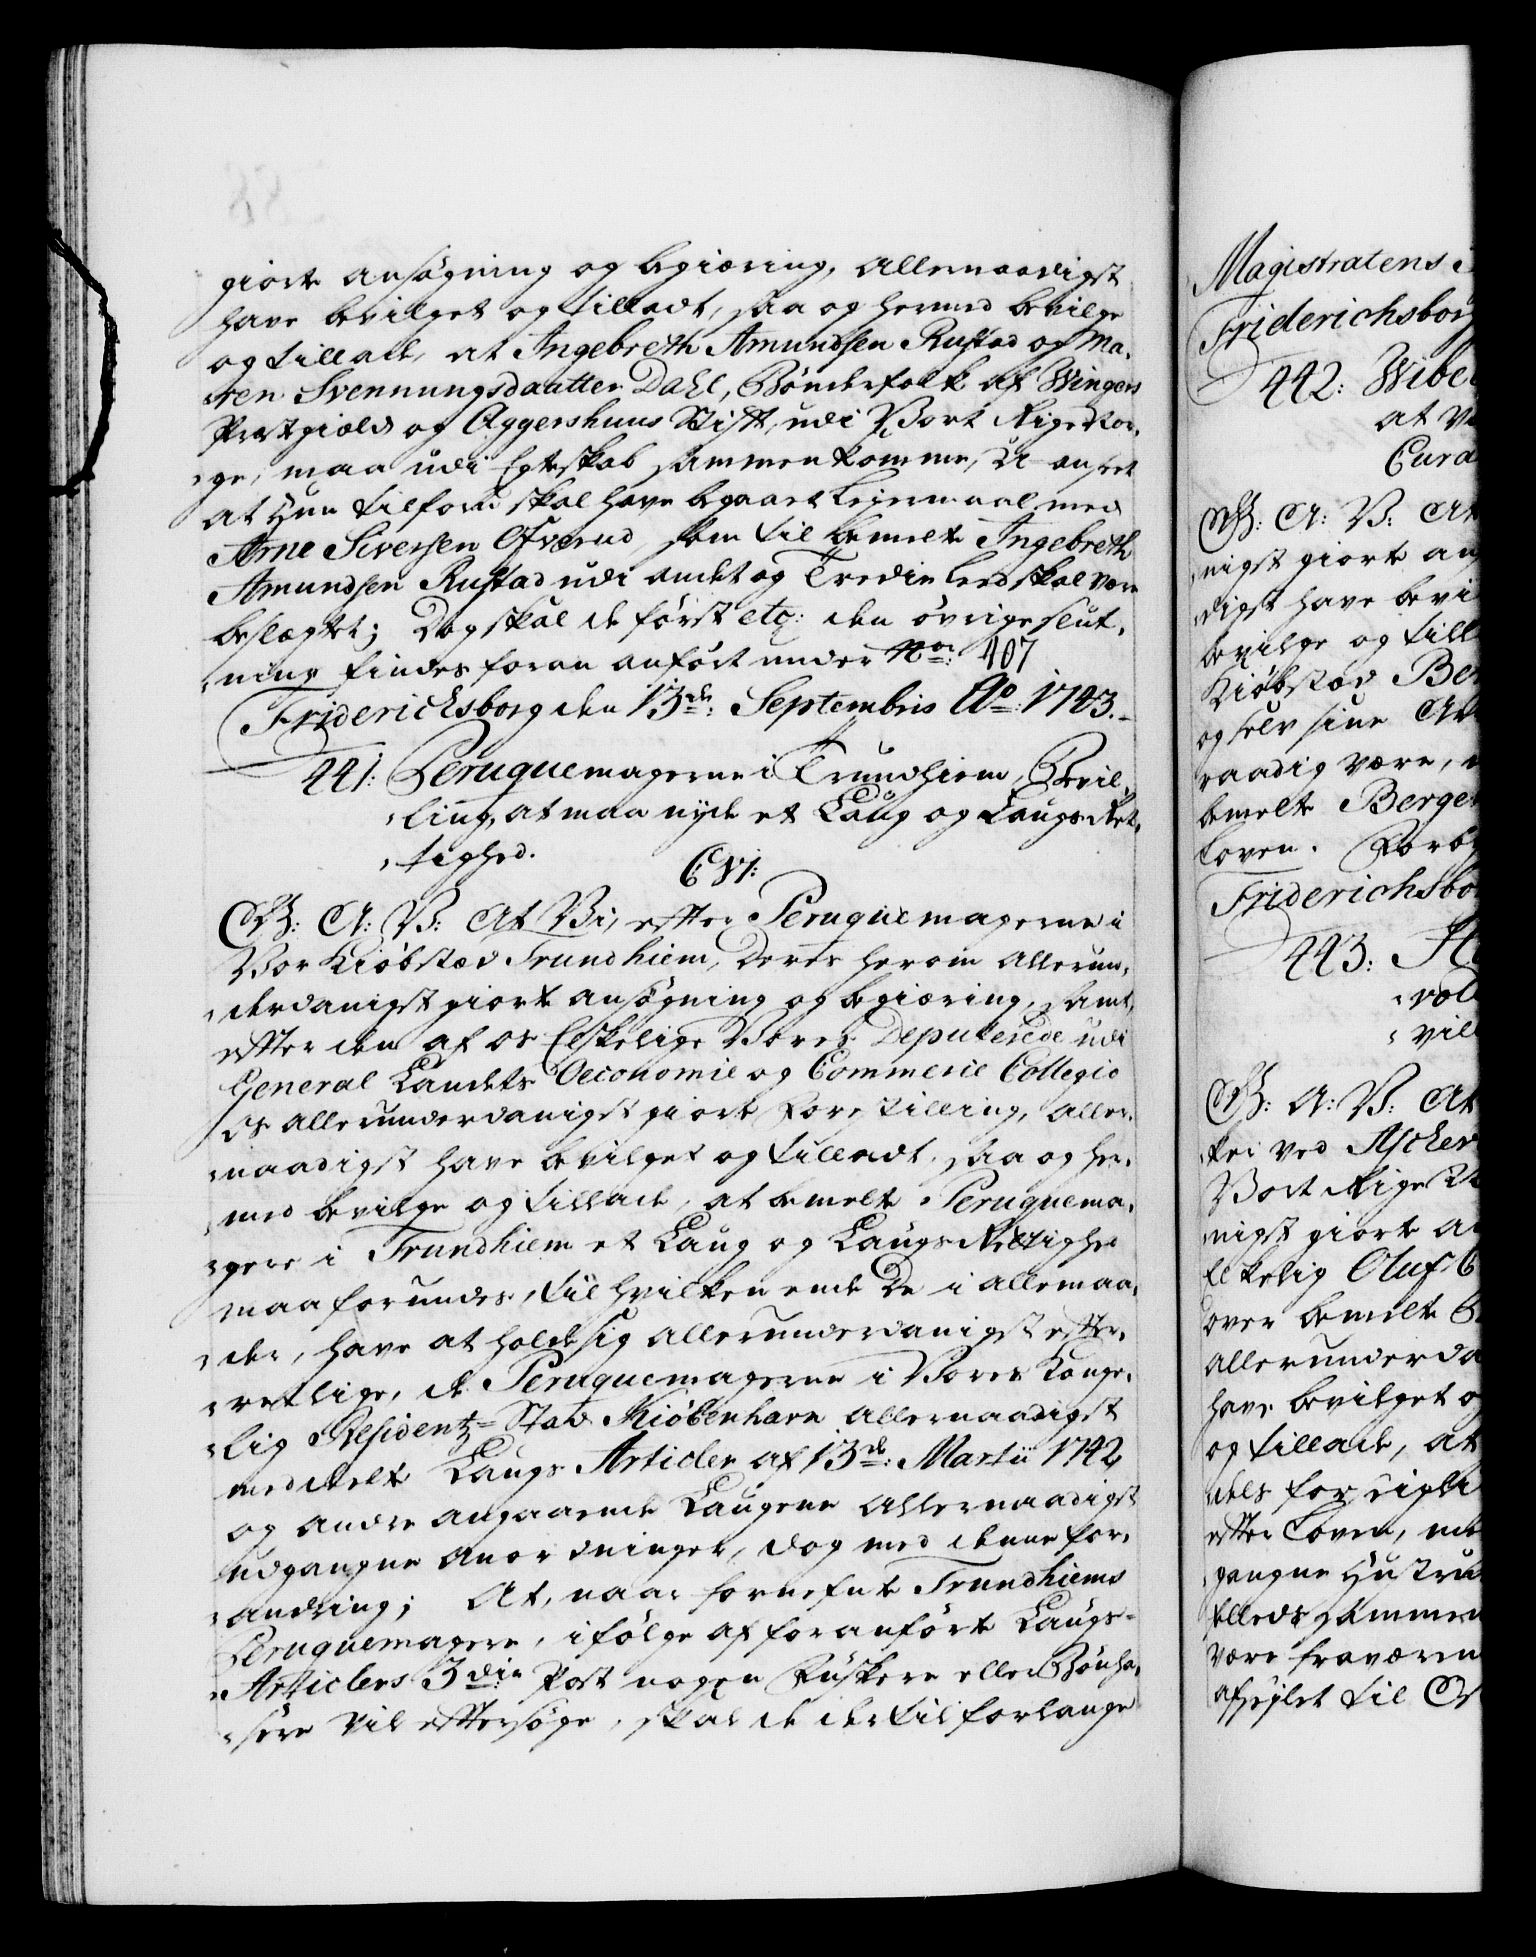 giorte ansøgning og begiæring, Allernaadigst
have bevilget og tilladt, saa og hermed bevilge
og tillade, at Ingebreth Amundsen Rustad og Ma-
ren Svennungsdaatter Dahl, Bønderfolk af Wingers
Præstgield og Aggershuus Stift, udi Vort Rige Nor-
ge, maa udi Egteskab sammenkomme, U-anseet
at Hun tilforn skal have begaaet Leiermaal med
Arne Siversen Ofverud, som til bemelte Ingebreth
Amundsen Rustad udi andet og Tredie Leed skal være
beslægtet; Dog skal de først etc: den øvrige slut-
ning findes foran anført under No: 407
Friderichsborg den 13de: Septembris Ao: 1743.
441: Peruquemagerne i Trundhiem, Bevil-
ling, at maa nyde et Laug og Laugs Ret-
tighed.
C VI:
G: A: V: At Vi, efter Peruquemagerne i
Vor Kiøbstæd Trundhiem, Deres herom Allerun-
derdanigst giorte ansøgning og begiæring, samt
efter den af os Elskelige Vores Deputerede udi
General Landets Oeconomie og Commerce Collegio
os allerunderdanigst giorte Forestilling, aller-
naadigst have bevilget og tilladt, saa og her-
med bevilge og tillade, at bemelte Peruquema-
gere i Trundhiem et Laug og Laugs Rettighed
maa forundes, til hvilken ende De i allemaa-
der, have at holde sig allerunderdanigst efter-
retlige, de Peruquemagerne i Vores Konge-
lig Residentz-Stad Kiøbenhavn allernaadigst
meddelte Laugs Articler af 13de: Martii 1742
og andre angaaende Laugene Allernaadigst
udgangne Anordninger, dog med denne for-
andring; At, naar fornefnte Trundhiems
Peruquemagere, ifølge af foranførte Laugs-
Articlers 3die Post nogen Fuskere eller Bønha-
sere vil eftersøge, skal de dertil forlange
Magistratens
Friderichsborg
442: Wibe
at
Cura
G: A: V: At
nigst giorte an
digst have bevi
bevilge og till
Kiøbstæd Ber
og selv sine
raadig være,
bemelte Bergen
Loven. Forby
Friderichsbo
443:
vol
vill
G: A: V: At
ved Ascher
Vort Rige
nigst giorte a
Elskelig Oluf
over bemelte
allerunderda
have bevilget o
og tillade, at
dels for
efter Loven, me
gangne Hustru
sammen
være fraværen
afseylet til